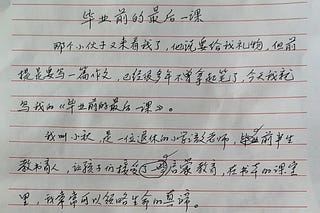 毕业前的最后一课
那个小伙子又来看我了，他说要给我礼物，但前
提是要写一篇作文，已经很多年不曾拿起笔了，今天我就
写我的《毕业前的最后一课》。
我叫小秋，是一位退休的小学教老师，前半生
教书育人，让孩子们接受了启蒙教育，在书本的课堂
里，我常常可以领略生命的真谛。